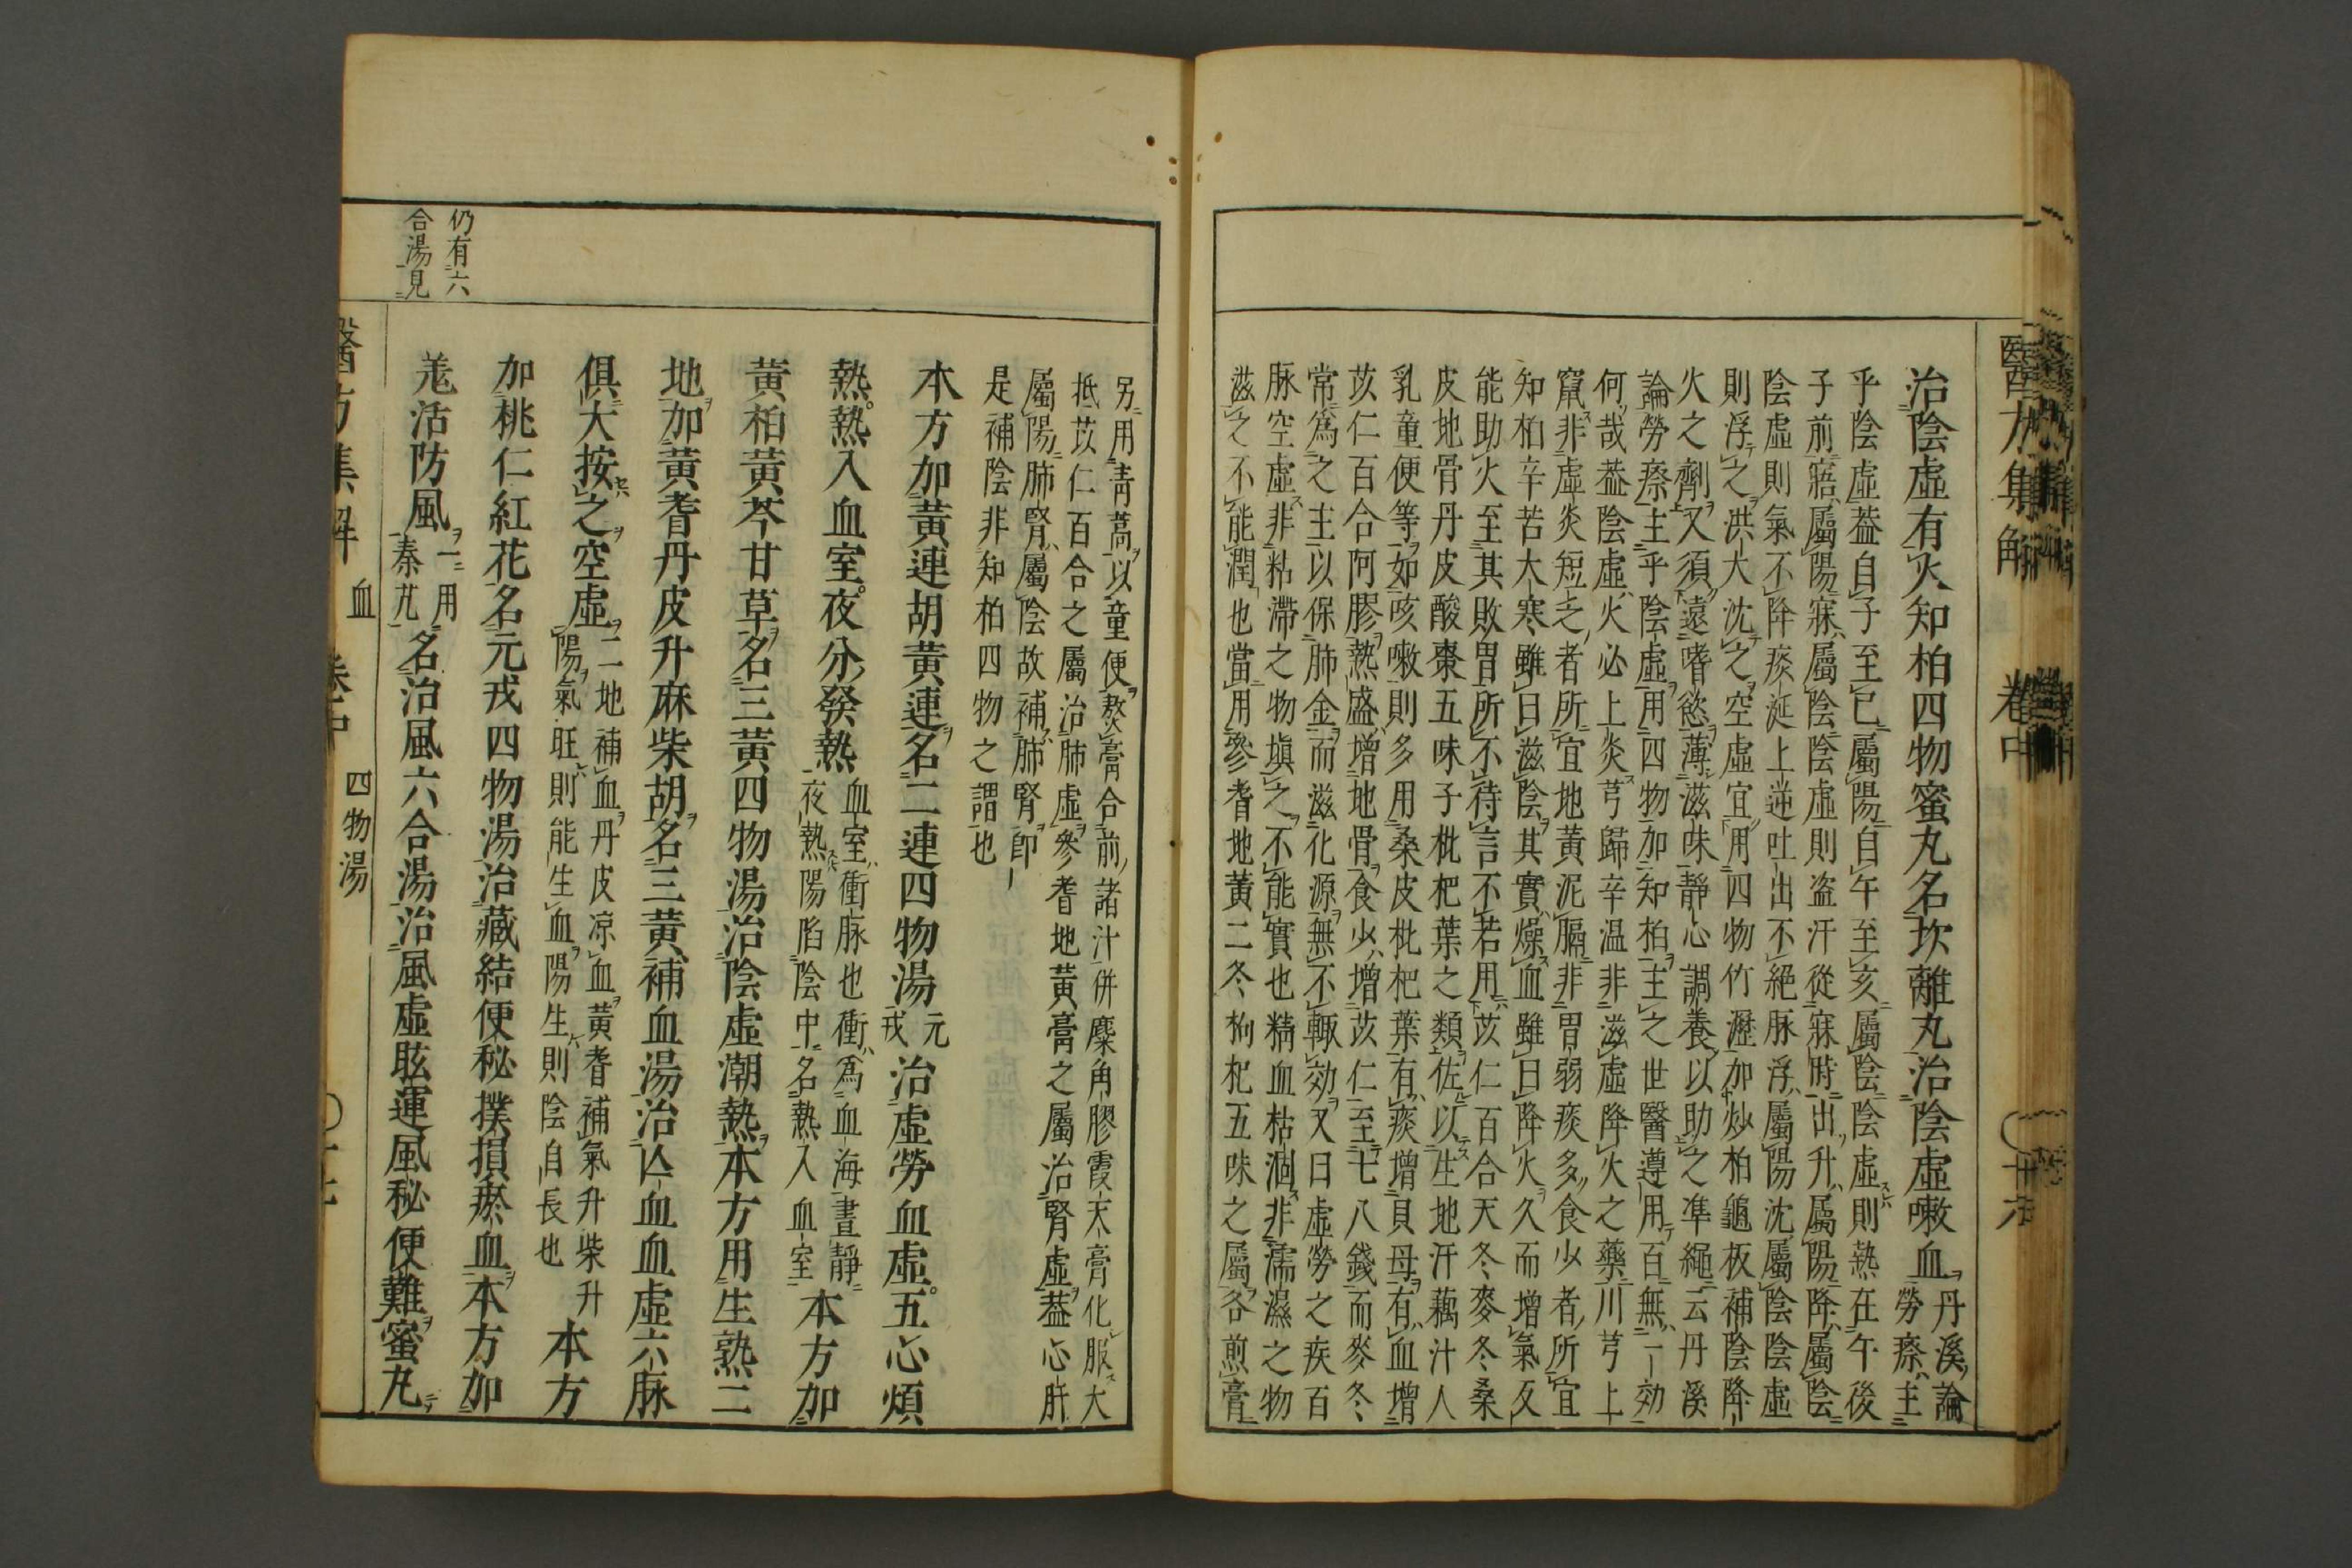 醫方集解 卷中
治陰虛有火知柏四物蜜丸名坎離丸治陰虛嗽血
丹溪論勞瘵主
乎陰虛葢自子至巳屬陽自午至亥屬陰陰虛則熱在午後
子前寤屬陽寐屬陰陰虛則盗汗從寐時出升屬陽降屬陰
陰虛則氣不降痰涎上逆吐出不絕脉浮屬陽沈屬陰陰虛
則浮之洪大沈之空虛宜用四物竹瀝加炒柏龜板補陰降
火之劑又須遠嗜慾薄滋味靜心調養以助之凖繩云丹溪
論勞瘵主乎陰虛用四物加知柏主之世醫遵用百無一効
何哉葢陰虛火必上炎芎歸辛温非滋虛降火之藥川芎上
竄非虛炎短乏者所宜地黃泥膈非胃弱痰多食少者所宜
知柏辛苦大寒雖曰滋陰其實燥血雖曰降火久而增氣反
能助火至其敗胃所不待言不若用苡仁百合天冬麥冬桑
皮地骨丹皮酸棗五味子枇杷葉之類佐以生地汗藕汁人
乳童便等如咳嗽則多用桑皮枇杷葉有痰增貝母有血增
苡仁百合阿膠熱盛增地骨食少增苡仁至七八錢而麥冬
常爲之主以保肺金而滋化源無不輙効又曰虛勞之疾百
脉空虛非粘滯之物塡之不能實也精血枯涸非濡濕之物
滋之不能潤也當用參耆地黃二冬枸杞五味之屬各煎膏
另用靑蒿以童便熬膏合前諸汁併麋角膠霞天膏化服大
抵苡仁百合之屬治肺虛參耆地黃膏之屬治腎虛葢心肝
屬陽肺腎屬陰故補肺腎卽
是補陰非知柏四物之謂也
本方加黃連胡黃連名二連四物湯
元
戎
治虛勞血虛五心煩
熱熱入血室夜分發熱
血室衝脉也衝爲血海晝靜
夜熱陽陷陰中名熱入血室
本方加
黃柏黃芩甘草名三黃四物湯治陰虛潮熱本方用生熟二
地加黃耆丹皮升麻柴胡名三黃補血湯治亾血血虛六脉
俱大按之空虛
二地補血丹皮凉血黃耆補氣升柴升
陽氣旺則能生血陽生則陰自長也
本方
加桃仁紅花名元戎四物湯治藏結便秘撲損瘀血本方加
羗活防風
一用
秦艽
名治風六合湯治風虛眩運風秘便難蜜丸
仍有六
合湯見
醫方集解 血 卷中 四物湯